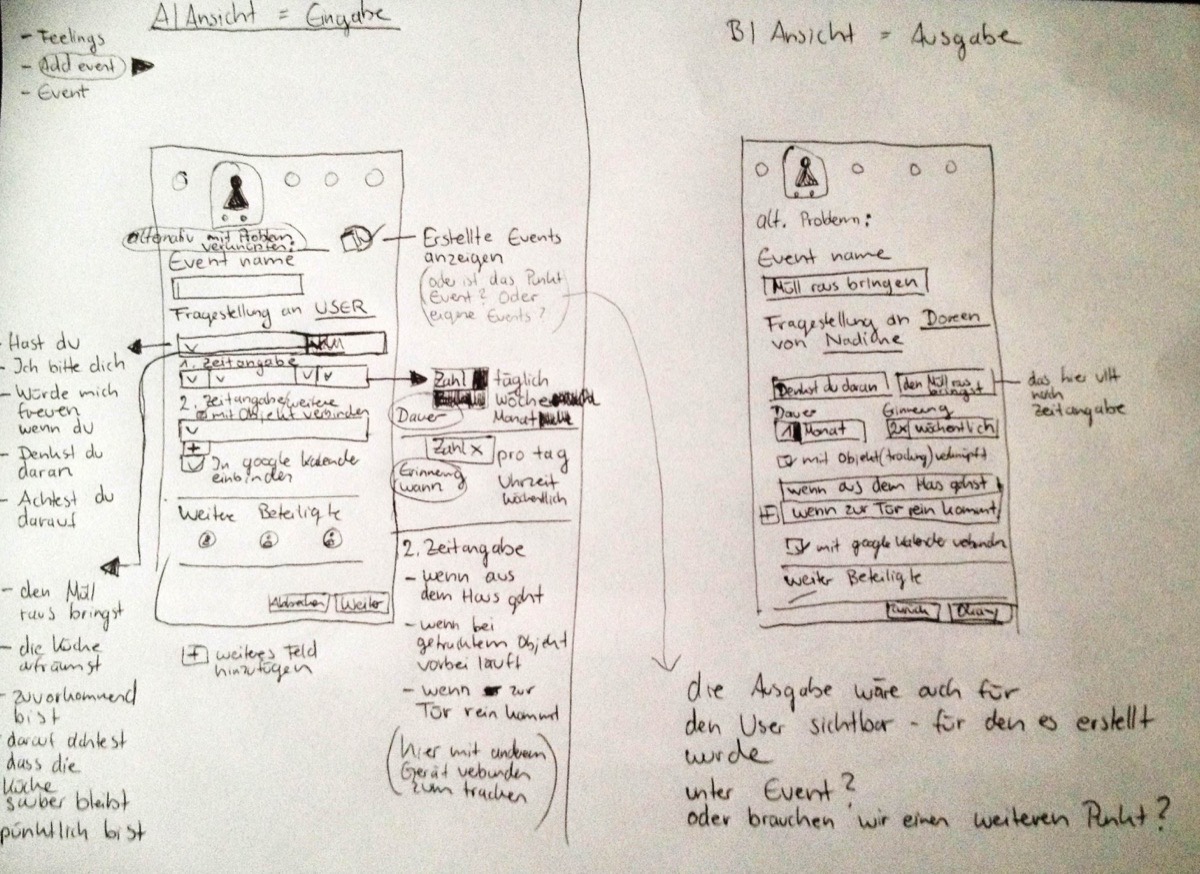 A| Ansicht = Eingabe
- Feelings
- Add event
- Event
alternativ mit Problem
verknüpfen:
Event name
Fragestellung an USER
1. Zeitangabe
2. Zeitangabe/weitere
mit Objekt verbinden
+
In google Kalende
einbinden
Weitere Beteiligte
Abbrechen
Weiter
+ weiteres Feld
hinzufügen
- Hast du
- Ich bitte dich
- Würde mich
freuen
wenn du
- Denkst du
daran
- Achtest du
darauf
- den Müll
raus bringst
- die Küche
aufräumst
- zuvorkommend
bist
- darauf achtest
dass die
Küche
sauber bleibt
pünktlich bist
Erstellte Events
anzeigen
(oder ist das Punkt
Event? Oder
eigene Events?
Zahl
täglich
Woche
Monat
Dauer
Zahl x
pro tag
Uhrzeit
wöchentlich
Erinnerung
wann
2. Zeitangabe
- wenn aus
dem Haus gehst
- wenn bei
getracktem Objekt
vorbei läuft
- wenn zur
Tür rein kommt
(hier mit anderem
Gerät verbunden
zum tracken)
B| Ansicht = Ausgabe
alt. Problem:
Event name
Müll raus bringen
Fragestellung an Doreen
von Nadine
Denkst du daran
den Müll raus
bringst
Dauer
Erinnerung
1 Monat
2x wöchentlich
mit Objekt(tracking) verknüpft
wenn aus dem Haus gehst
+ wenn zur Tür rein kommt
mit google Kalende verbinden
weiter Beteiligte
Zurück
Okay
das hier vllt
nach
Zeitangabe
die Ausgabe wäre auch für
den User sichtbar - für den es erstellt
wurde
unter Event?
oder brauchen wir einen weiteren Punkt?